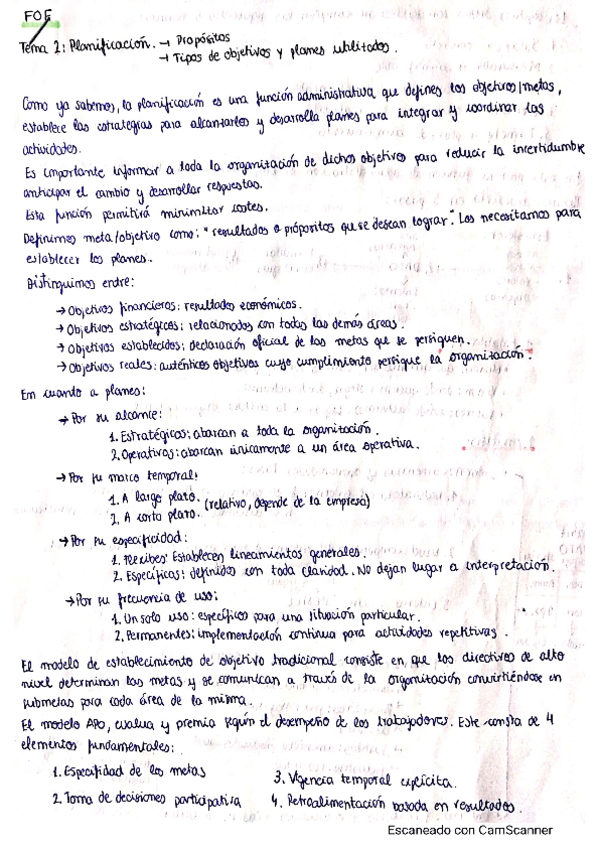 FOE
Tema 2: Planificación. → Propósitos
→ Tipos de objetivos y planes utilizados.
Como ya sabemos, la planificación es una función administrativa que defines los objetivos/metas,
establece las estrategias para alcanzarlos y desarrolla planes para integrar y coordinar las
actividades.
Es importante informar a toda la organización de dichos objetivos para reducir la incertidumbre
anticipar el cambio y desarrollar respuestas.
Esta función permitirá minimizar costes.
Definimos meta/objetivo como: "resultados o propósitos que se desean lograr". Los necesitamos para
establecer los planes.
Distinguimos entre:
→ Objetivos financieros: resultados económicos.
→ Objetivos estratégicos: relacionados con todas las demás áreas.
→ Objetivos establecidos: declaración oficial de las metas que se persiguen.
→ Objetivos reales: auténticos objetivos cuyo cumplimiento persigue la organización.
En cuando a planes:
→ Por su alcance:
1. Estratégicos: abarcan a toda la organización.
2. Operativos: abarcan únicamente a un área operativa.
→ Por su marco temporal:
1. A largo plazo.
2. A corto plazo. (relativo, depende de la empresa)
→ Por su especificidad:
1. Flexibes: Establecen lineamientos generales.
2. Específicas: definidos con toda claridad. No dejan lugar a interpretación.
→ Por su frecuencia de uso:
1. Un solo uso: específicos para una situación particular.
2. Permanentes: implementación continua para actividades repetitivas.
El modelo de establecimiento de objetivo tradicional consiste en que los directivos de alto
nivel determinan las metas y se comunican a través de la organización convirtiéndose en
submetas para cada área de la misma.
El modelo APO, evalua y premia según el desempeño de los trabajadores. Este consta de 4
elementos fundamentales:
1. Especifidad de las metas
2. Toma de decisiones participativa
3. Vigencia temporal explícita.
4. Retroalimentación basada en resultados.
Escaneado con CamScanner